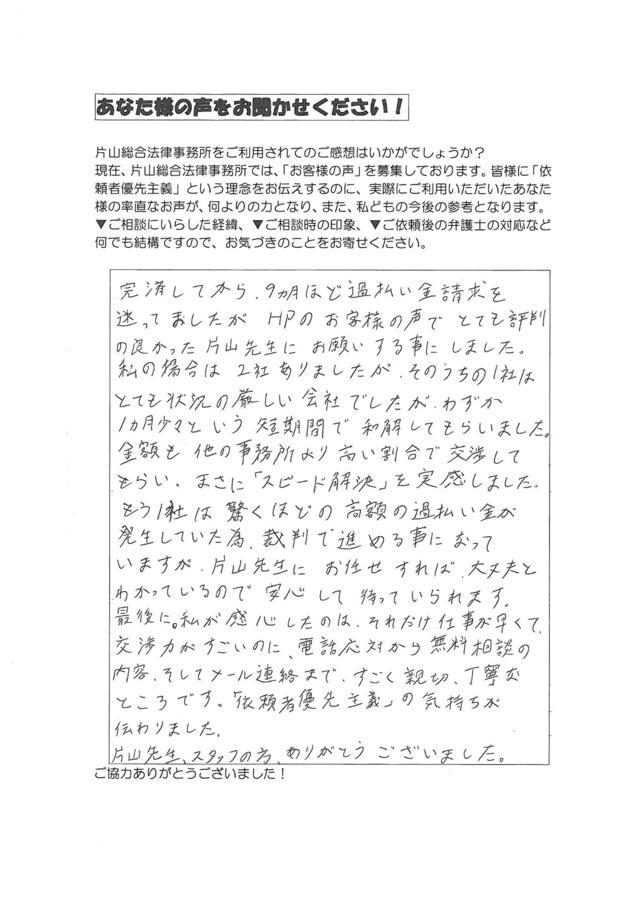 あなた様の声をお聞かせください！
片山総合法律事務所をご利用されてのご感想はいかがでしょうか？
現在、片山総合法律事務所では、「お客様の声」を募集しております。皆様に「依
頼者優先主義」という理念をお伝えするのに、実際にご利用いただいたあなた
様の率直なお声が、何よりの力となり、また、私どもの今後の参考となります。
▼ご相談にいらした経緯、▼ご相談時の印象、▼ご依頼後の弁護士の対応など
何でも結構ですので、お気づきのことをお寄せください。
完済してから、9ヵ月ほど過払い金請求を
迷ってましたが HPのお客様の声でとても評判
の良かった片山先生に お願いする事にしました。
私の場合は 2社ありましたが、そのうちの1社は
とても状況の厳しい会社でしたが、わずか
1ヵ月少々という 短期間で 和解してもらいました。
金額も 他の事務所より 高い割合で 交渉して
もらい、まさに「スピード解決」を実感しました。
もう1社は 驚くほどの 高額の過払い金が
発生していた為、裁判で進める事になって
いますが、片山先生に お任せすれば、大丈夫と
わかっているので 安心して 待っていられます。
最後に。私が感心したのは、それだけ仕事が早くて、
交渉力がすごいのに、電話応対から無料相談の
内容、そしてメール連絡まで、すごく親切、丁寧な
ところです。「依頼者優先主義」の気持ちが
伝わりました。
片山先生、スタッフの方、ありがとうございました。
ご協力ありがとうございました！